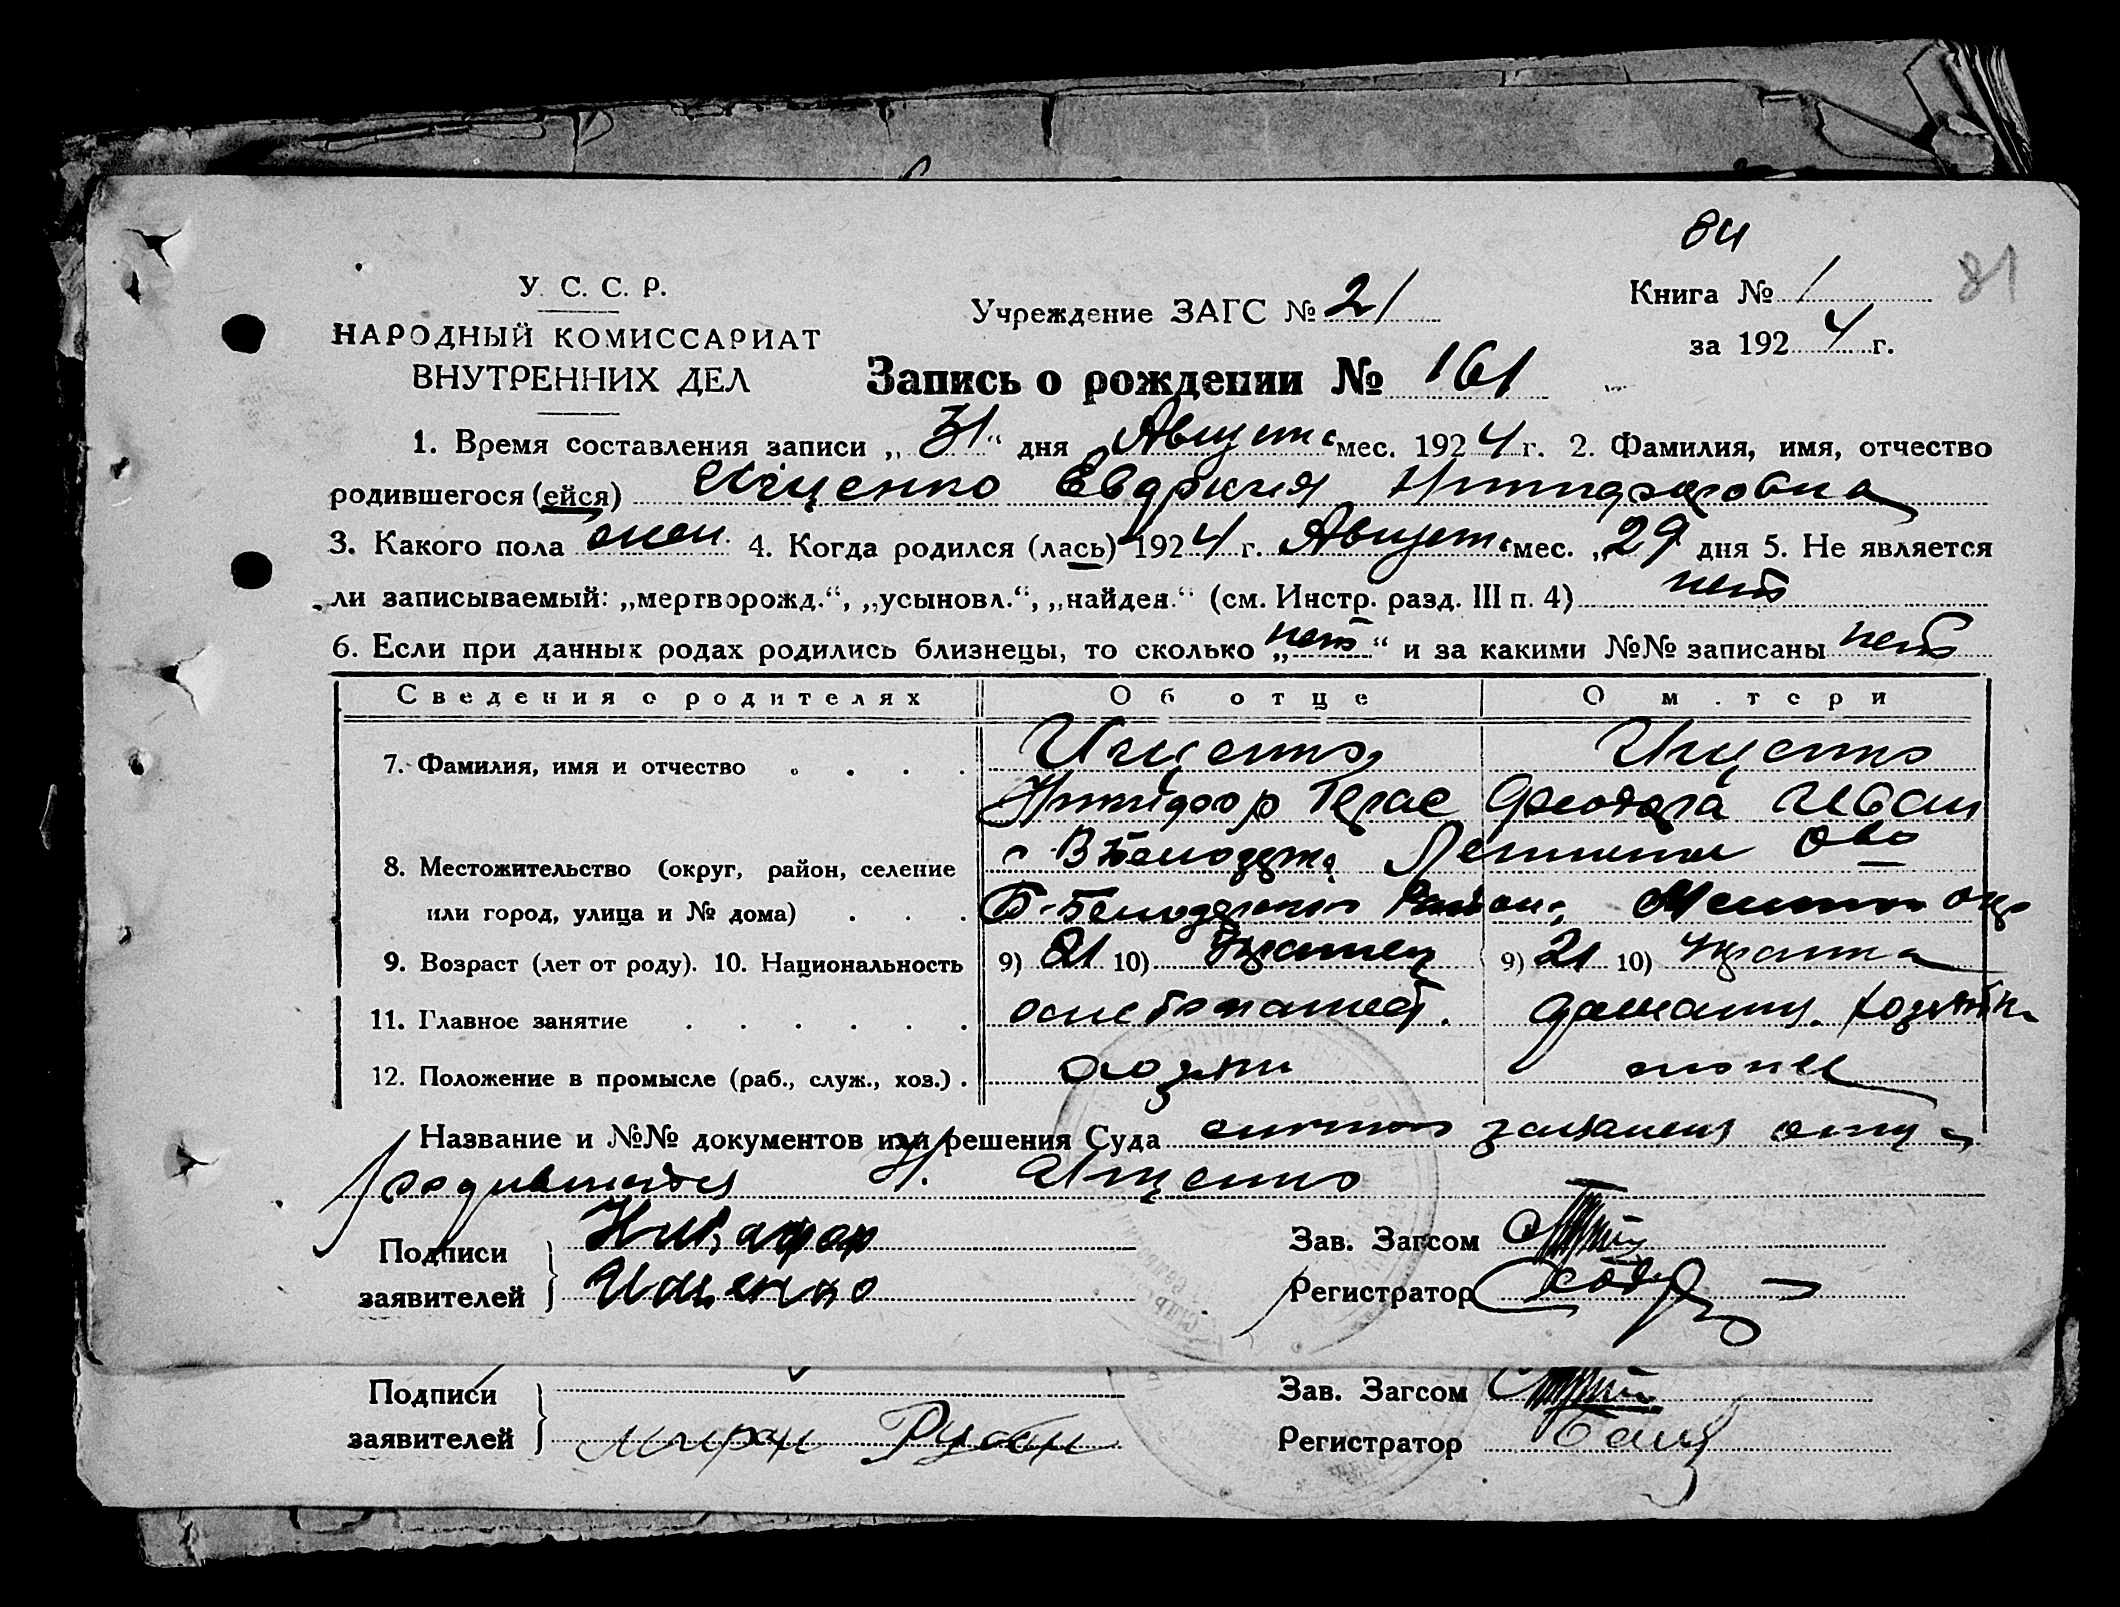 84
У. С. С. Р.
НАРОДНЫЙ КОМИССАРИАТ
ВНУТРЕННИХ ДЕЛ
Учреждение ЗАГС № 21
Книга № 1
81
за 1924 г.
Запись о рождении № 161
1. Время составления записи „31“ дня Август мес. 1924 г. 2. Фамилия, имя, отчество
родившегося (ейся) Ищенко Евдокия Никифоровна
3. Какого пола жен. 4. Когда родился (лась) 1924 г. Август мес. „29 дня 5. Не является
ли записываемый: „мертворожд.“, „усыновл.“, „найден.“ (см. Инстр. разд. III п. 4) нет
6. Если при данных родах родились близнецы, то сколько „нет“ и за какими №№ записаны нет
Сведения о родителях Об отце О м.тери
7. Фамилия, имя и отчество Ищенко Ищенко
Никифор Герас Феодора Иван
8. Местожительство (округ, район, селение
или город, улица и № дома) Район
9. Возраст (лет от роду). 10. Национальность 9) 21 10) Украинец 9) 21 10) Украинка
11. Главное занятие домашн. хозяйка
12. Положение в промысле (раб., служ., хоз.)
Название и №№ документов или решения Суда личного заявления отца
родившейся Н. Ищенко
Подписи
заявителей
Никафор
Ищенко
Зав. Загсом
Регистратор
Подписи
заявителей
Мирон Рубан
Зав. Загсом
Регистратор